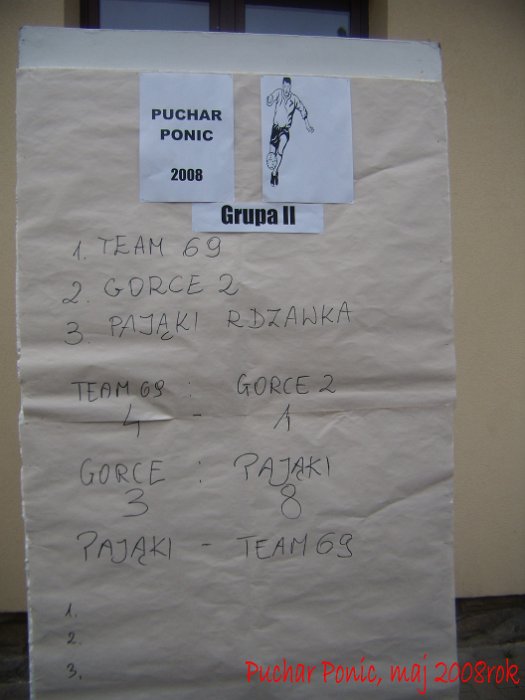 PUCHAR
PONIC
2008
Grupa II
1. TEAM 69
2. GORCE 2
3. PAJĄKI RDZAWKA
TEAM 69 : GORCE 2
4 - 1
GORCE : PAJĄKI
3 8
PAJĄKI - TEAM 69
1.
2.
3.
Puchar Ponic, maj 2008rok